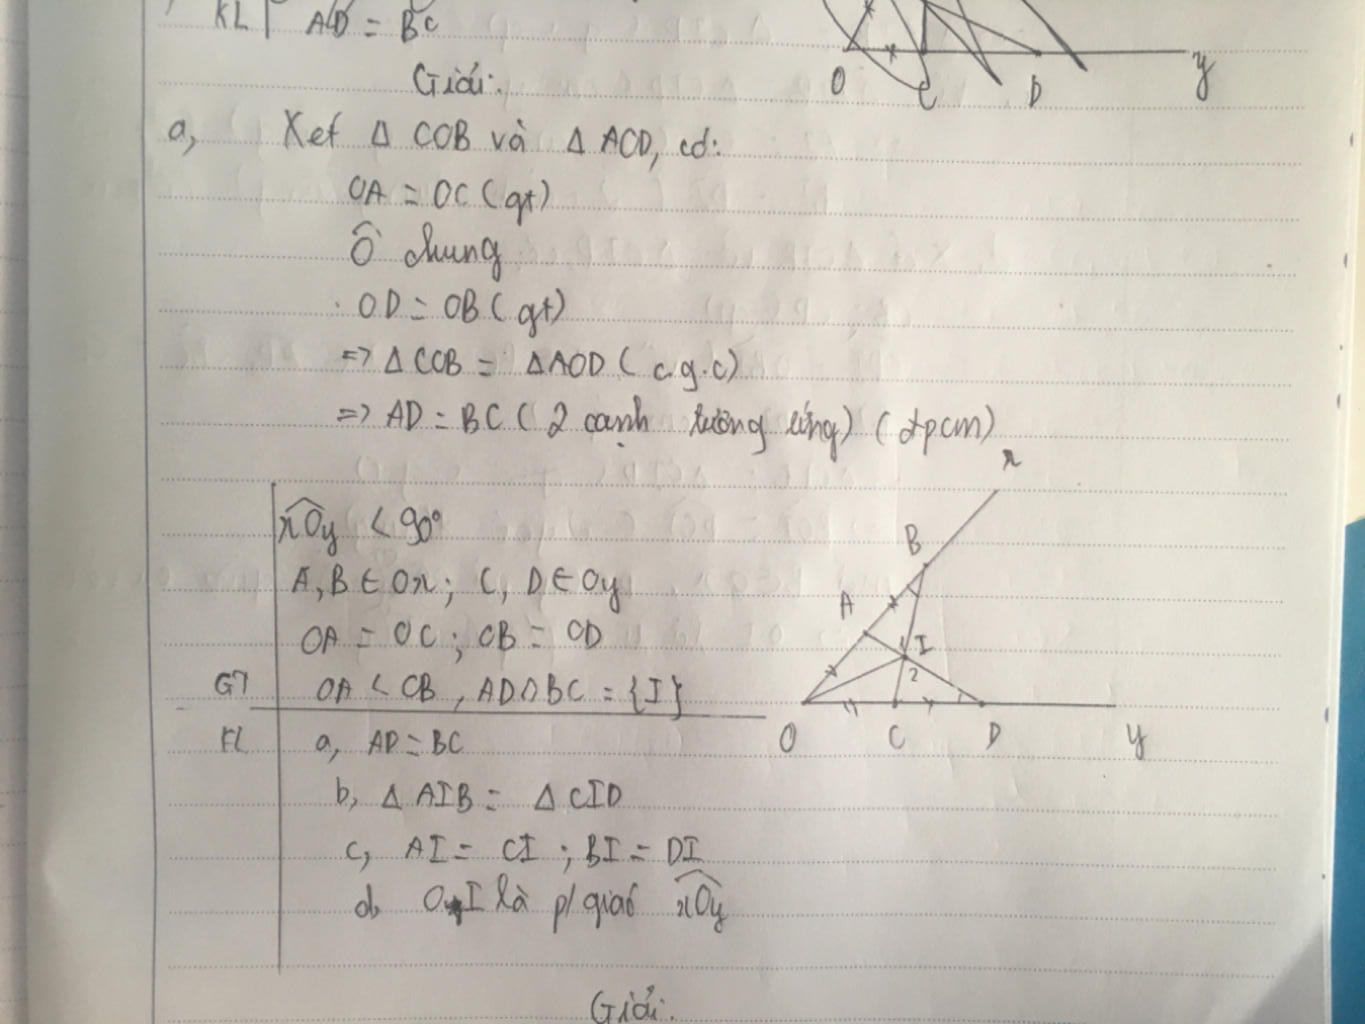 KL AD = BC
Giải:
O C D y
a, Xét Δ COB và Δ AOD, có:
OA = OC (gt)
Ô chung
OD = OB (gt)
=> Δ COB = Δ AOD (c.g.c)
=> AD = BC (2 cạnh tương ứng) (đpcm)
x
xOy < 90°
B
A, B ∈ Ox; C, D ∈ Oy
A
OA = OC; OB = OD
1 I
2
GT OA < OB, AD ∩ BC = {I}
O C D y
KL a, AD = BC
b, Δ AIB = Δ CID
c, AI = CI; BI = DI
d, OI là p/giác xOy
Giải: